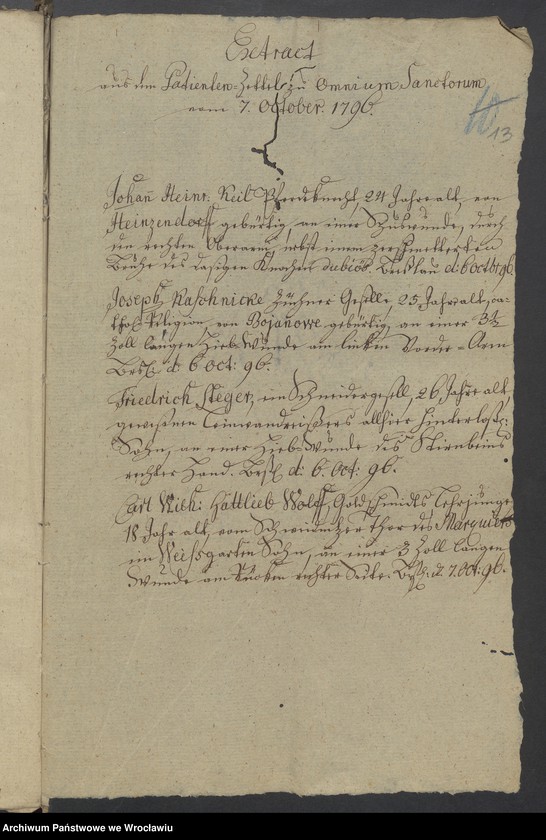 Extract
aus dem Patienten-Zettel zu Omnium Sanctorum
vom 7. October. 1796.
13
Johañ Heinr. Keil Pferdeknecht, 24 Jahr alt, von
Heinzendorff gebürtig an einer Schußwunde, durch
den rechten Oberarm, nebst einem zerschmetterten
Bruche des dasigen Knochen dubiös. d: 6 octbr 96.
Joseph Raschnicke Züchner Geselle, 25 Jahr alt, ca-
thol: Religion, von Bojanowe gebürtig, an einer 3½
Zoll langen Hieb-Wunde am linken Vorder-Arm
d: 6 oct: 96.
Friedrich Steger, ein Schneidergesell, 26 Jahr alt,
gewesenen Leinwandreißers allhier hinterlaße:
Sohn, an einer Hieb-Wunde des Stirnbeins
rechter Hand. d: 6. Oct: 96.
Carl Wilh: Gottlieb Wolff, Goldschmidts Lehrjunge
18 Jahr alt, vom Schweidnitzer Thor des
im Weissgarten Sohn, an einer 3 Zoll langen
Wunde am Rücken rechter Seite. d. 7. Oct: 96.
Archiwum Państwowe we Wrocławiu